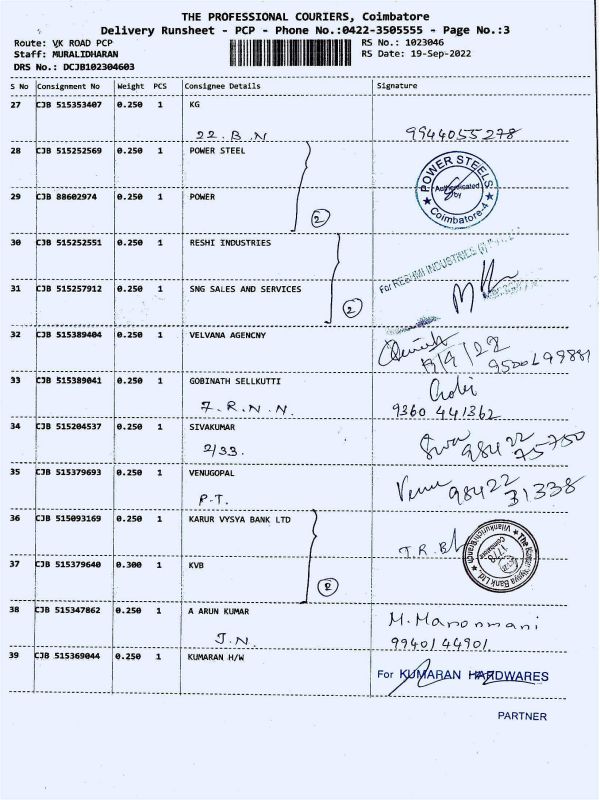 THE PROFESSIONAL COURIERS, Coimbatore
Delivery Runsheet - PCP - Phone No.:0422-3505555 - Page No.:3
Route: VK ROAD PCP
RS No.: 1023046
Staff: MURALIDHARAN
RS Date: 19-Sep-2022
DRS No.: DCJB102304603
S No Consignment No Weight PCS Consignee Details Signature
27 CJB 515353407 0.250 1 KG
22. B. N 9944055278
28 CJB 515252569 0.250 1 POWER STEEL
POWER STEELS
Authenticated
by
Coimbatore-4
29 CJB 88602974 0.250 1 POWER
2
30 CJB 515252551 0.250 1 RESHI INDUSTRIES
For RESHMI INDUSTRIES
31 CJB 515257912 0.250 1 SNG SALES AND SERVICES
2
32 CJB 515389404 0.250 1 VELVANA AGENCNY
33 CJB 515389041 0.250 1 GOBINATH SELLKUTTI
Gobi
7. R. N. N. 9360 441362
34 CJB 515204537 0.250 1 SIVAKUMAR
2/33. Siva 98422
75750
35 CJB 515379693 0.250 1 VENUGOPAL
P.T. Venu 98422
31338
36 CJB 515093169 0.250 1 KARUR VYSYA BANK LTD
The Karur Vysya Bank Ltd.
Coimbatore
37 CJB 515379640 0.300 1 KVB
2
38 CJB 515347862 0.250 1 A ARUN KUMAR
M. Manonmani
J.N. 9940144901.
39 CJB 515369044 0.250 1 KUMARAN H/W
For KUMARAN HARDWARES
PARTNER